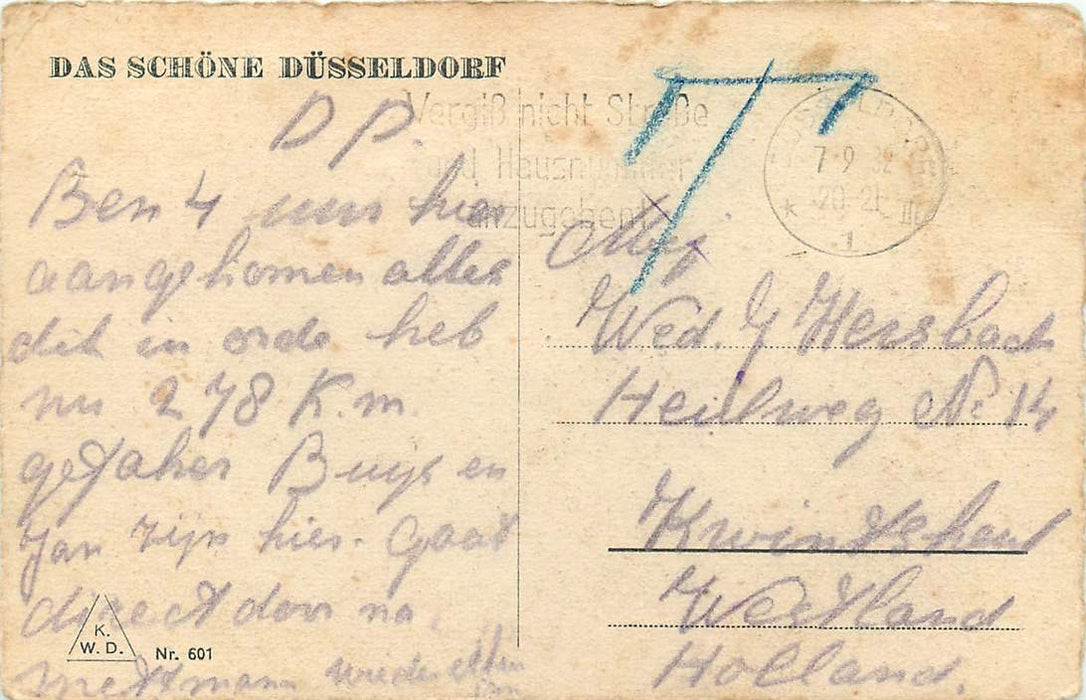 DAS SCHÖNE DÜSSELDORF
Vergiß nicht Straße
und Hausnummer
anzugeben!
7-9 32
20-21
1
D P.
Ben 4 uur hier
aangekomen alles
dik in orde heb
nu 278 K.m.
gefahren Buys en
Jan zijn hier. Gaat
direct door na
mettmann
Mej
Wed. J Hersbach
Heulweg No 14
Kwintsheul
Westland
Holland.
K.
W. D.
Nr. 601